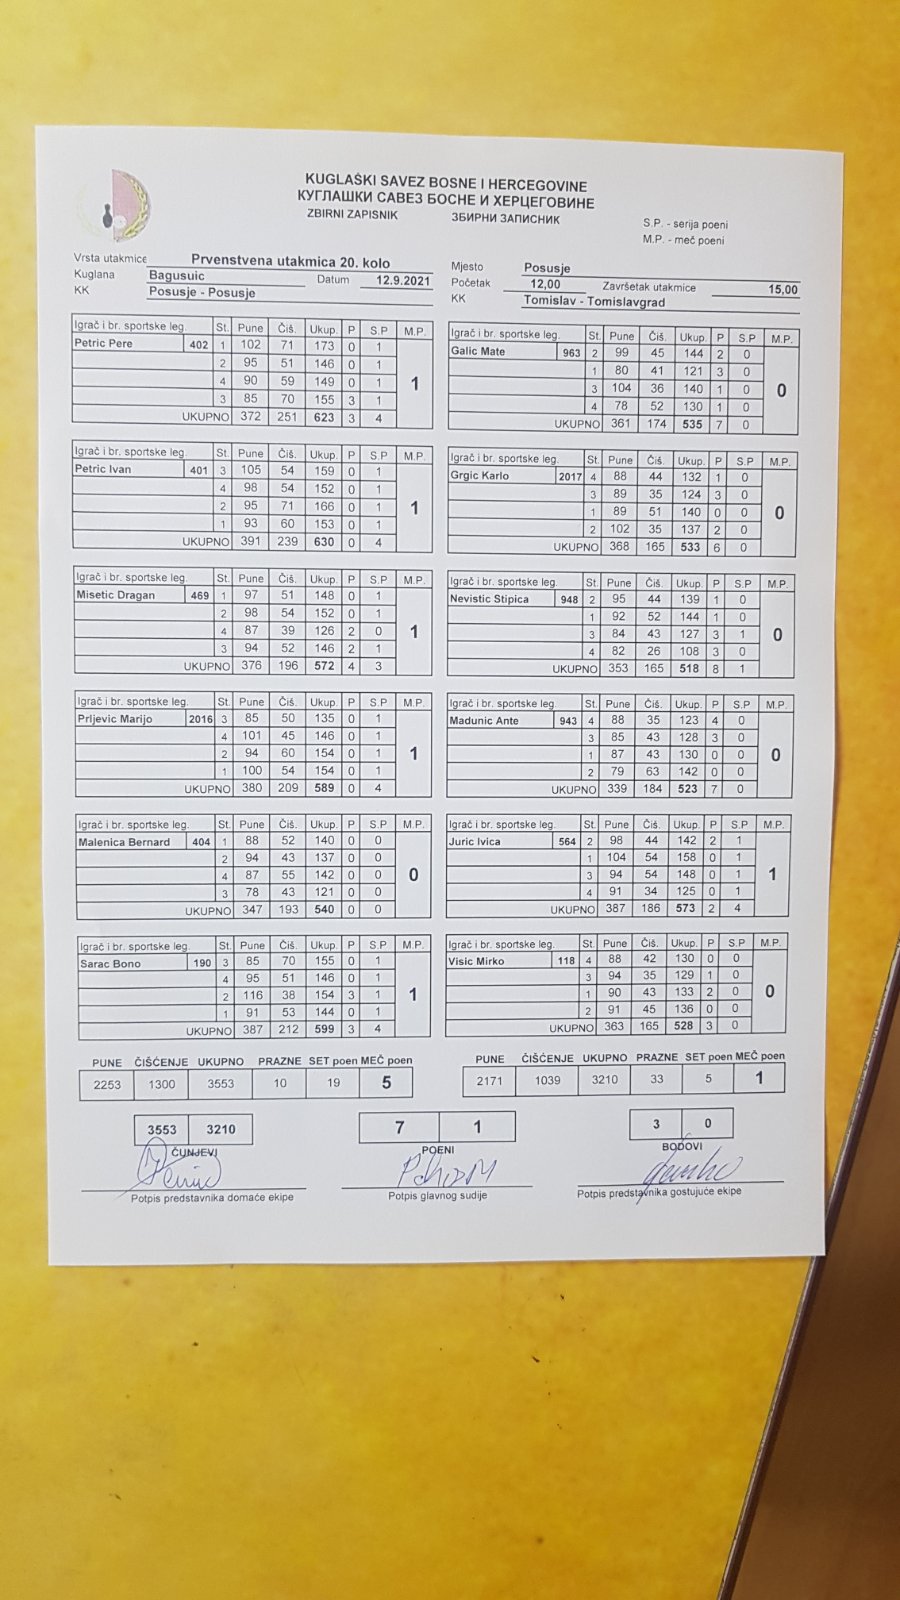 KUGLAŠKI SAVEZ BOSNE I HERCEGOVINE
КУГЛАШКИ САВЕЗ БОСНЕ И ХЕРЦЕГОВИНЕ
ZBIRNI ZAPISNIK ЗБИРНИ ЗАПИСНИК
S.P. - serija poeni
M.P. - meč poeni
Vrsta utakmice Prvenstvena utakmica 20. kolo
Kuglana Bagusuic Datum 12.9.2021
KK Posusje - Posusje
Mjesto Posusje
Početak 12,00 Završetak utakmice 15,00
KK Tomislav - Tomislavgrad
Igrač i br. sportske leg. St. Pune Čiš. Ukup. P S.P M.P.
Petric Pere 402 1 102 71 173 0 1
2 95 51 146 0 1
4 90 59 149 0 1
3 85 70 155 3 1
1
UKUPNO 372 251 623 3 4
Igrač i br. sportske leg. St. Pune Čiš. Ukup. P S.P M.P.
Galic Mate 963 2 99 45 144 2 0
1 80 41 121 3 0
3 104 36 140 1 0
4 78 52 130 1 0
0
UKUPNO 361 174 535 7 0
Igrač i br. sportske leg. St. Pune Čiš. Ukup. P S.P M.P.
Petric Ivan 401 3 105 54 159 0 1
4 98 54 152 0 1
2 95 71 166 0 1
1 93 60 153 0 1
1
UKUPNO 391 239 630 0 4
Igrač i br. sportske leg. St. Pune Čiš. Ukup. P S.P M.P.
Grgic Karlo 2017 4 88 44 132 1 0
3 89 35 124 3 0
1 89 51 140 0 0
2 102 35 137 2 0
0
UKUPNO 368 165 533 6 0
Igrač i br. sportske leg. St. Pune Čiš. Ukup. P S.P M.P.
Misetic Dragan 469 1 97 51 148 0 1
2 98 54 152 0 1
4 87 39 126 2 0
3 94 52 146 2 1
1
UKUPNO 376 196 572 4 3
Igrač i br. sportske leg. St. Pune Čiš. Ukup. P S.P M.P.
Nevistic Stipica 948 2 95 44 139 1 0
1 92 52 144 1 0
3 84 43 127 3 1
4 82 26 108 3 0
0
UKUPNO 353 165 518 8 1
Igrač i br. sportske leg. St. Pune Čiš. Ukup. P S.P M.P.
Prljevic Marijo 2016 3 85 50 135 0 1
4 101 45 146 0 1
2 94 60 154 0 1
1 100 54 154 0 1
1
UKUPNO 380 209 589 0 4
Igrač i br. sportske leg. St. Pune Čiš. Ukup. P S.P M.P.
Madunic Ante 943 4 88 35 123 4 0
3 85 43 128 3 0
1 87 43 130 0 0
2 79 63 142 0 0
0
UKUPNO 339 184 523 7 0
Igrač i br. sportske leg. St. Pune Čiš. Ukup. P S.P M.P.
Malenica Bernard 404 1 88 52 140 0 0
2 94 43 137 0 0
4 87 55 142 0 0
3 78 43 121 0 0
0
UKUPNO 347 193 540 0 0
Igrač i br. sportske leg. St. Pune Čiš. Ukup. P S.P M.P.
Juric Ivica 564 2 98 44 142 2 1
1 104 54 158 0 1
3 94 54 148 0 1
4 91 34 125 0 1
1
UKUPNO 387 186 573 2 4
Igrač i br. sportske leg. St. Pune Čiš. Ukup. P S.P M.P.
Sarac Bono 190 3 85 70 155 0 1
4 95 51 146 0 1
2 116 38 154 3 1
1 91 53 144 0 1
1
UKUPNO 387 212 599 3 4
Igrač i br. sportske leg. St. Pune Čiš. Ukup. P S.P M.P.
Visic Mirko 118 4 88 42 130 0 0
3 94 35 129 1 0
1 90 43 133 2 0
2 91 45 136 0 0
0
UKUPNO 363 165 528 3 0
PUNE ČIŠĆENJE UKUPNO PRAZNE SET poen MEČ poen
2253 1300 3553 10 19 5
PUNE ČIŠĆENJE UKUPNO PRAZNE SET poen MEČ poen
2171 1039 3210 33 5 1
3553 3210
ČUNJEVI
7 1
POENI
3 0
BODOVI
Potpis predstavnika domaće ekipe
Potpis glavnog sudije
Potpis predstavnika gostujuće ekipe